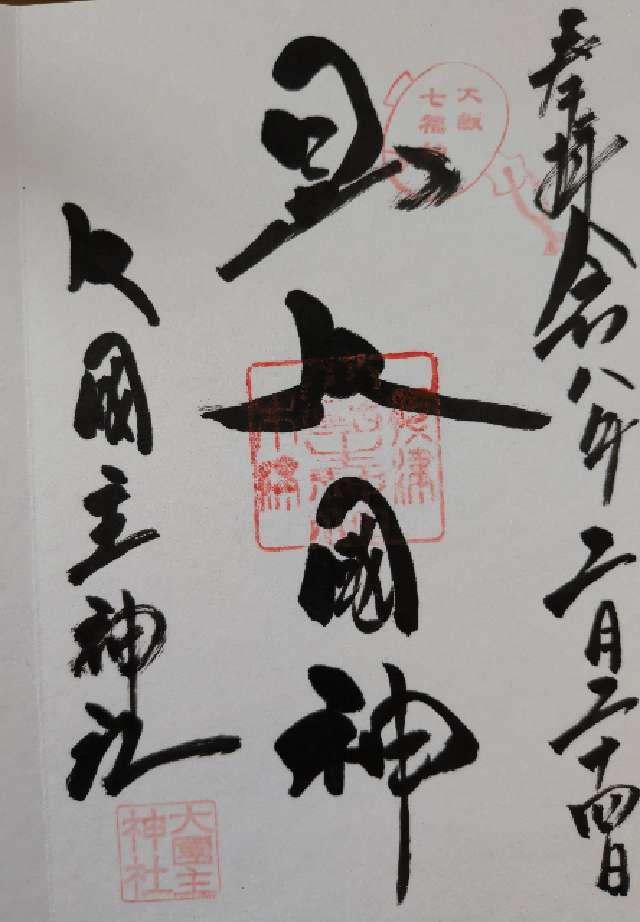 奉拝 令和八年二月二十四日
大阪
七福神
日出大國神
大國主神社
大國主
神社